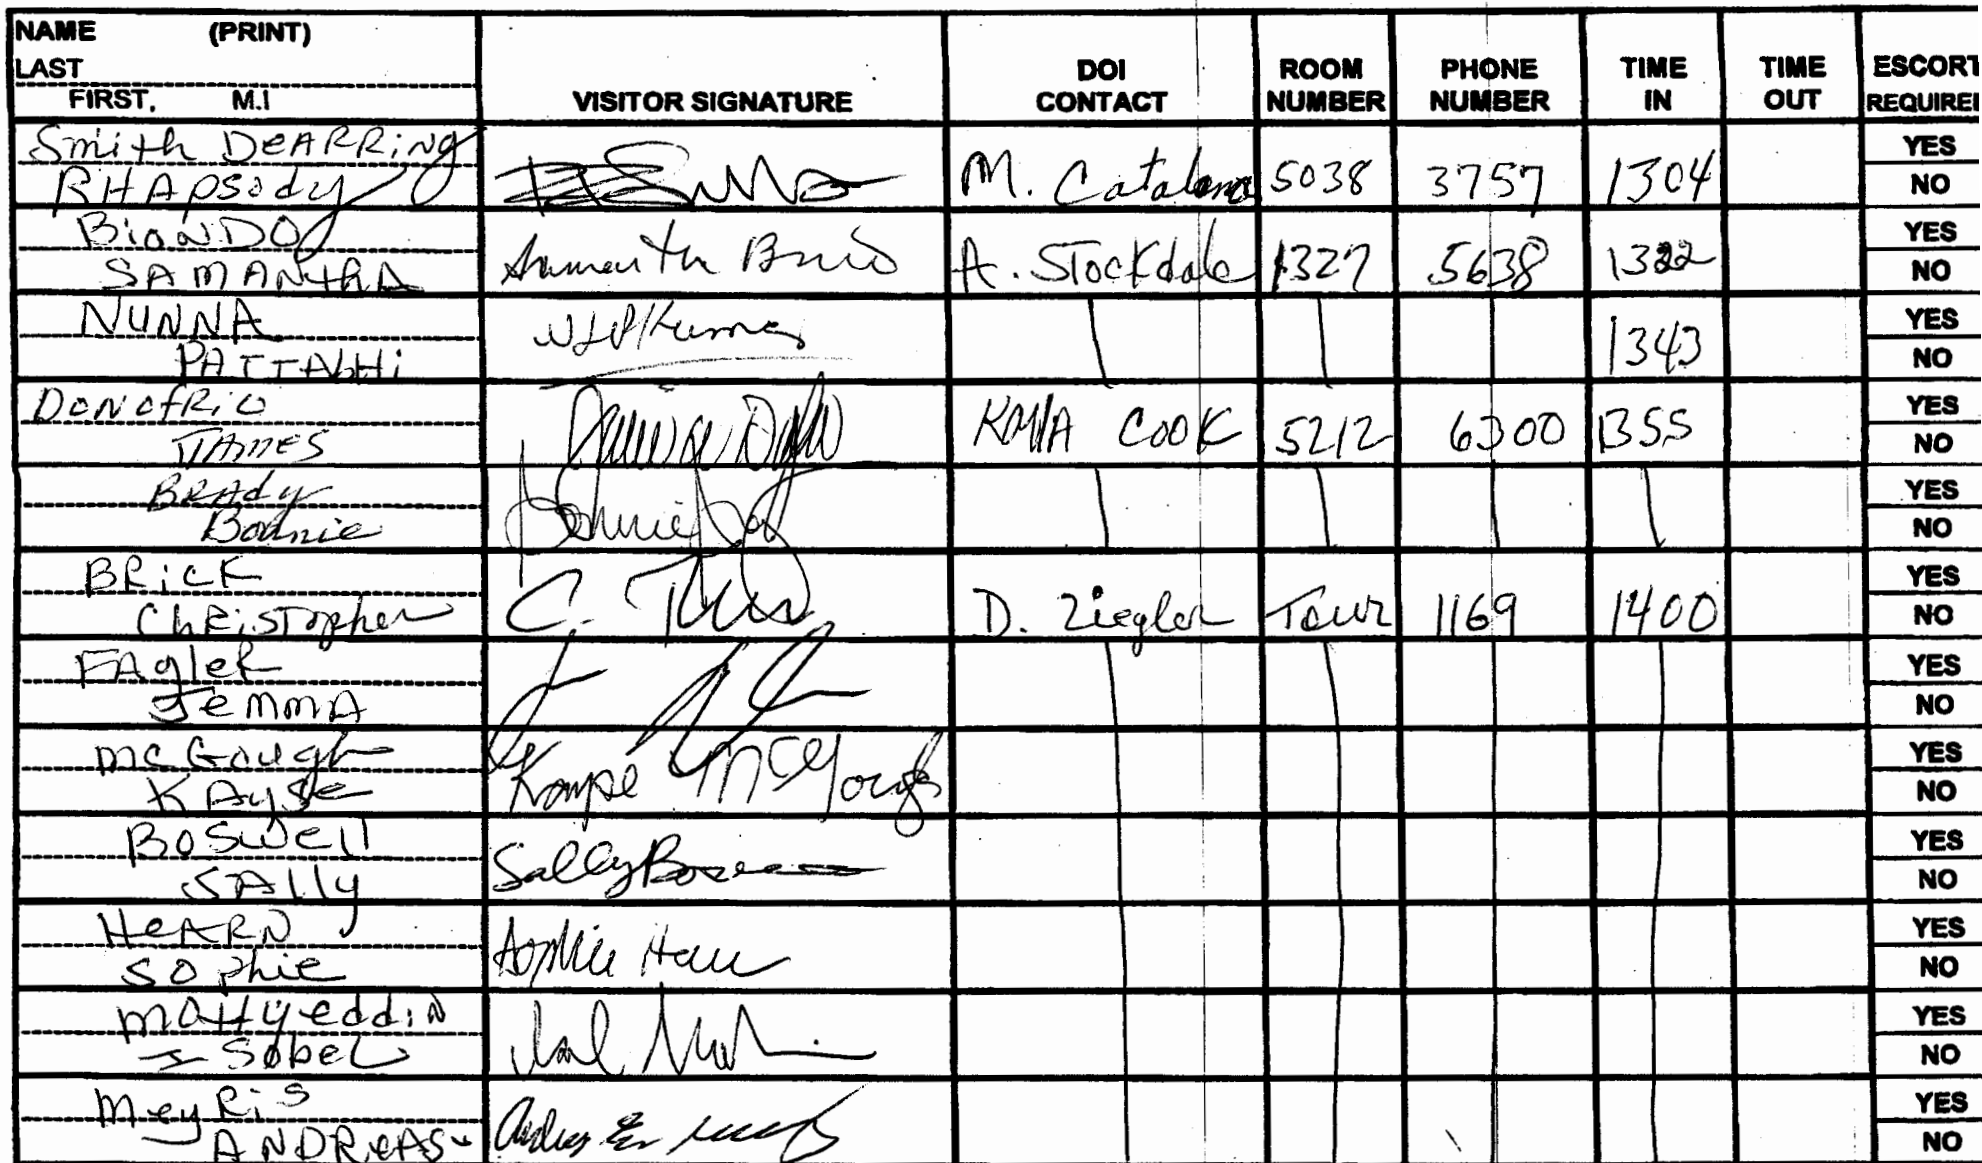 NAME (PRINT)
LAST
FIRST, M.I
VISITOR SIGNATURE
DOI CONTACT
ROOM NUMBER
PHONE NUMBER
TIME IN
TIME OUT
ESCORT REQUIRE
Smith DEARRiNg
RHApsody
M. Catalano 5038 3757 1304
YES
NO
BioNDO
SAMANthA
Samantha
A. STockdale 1327 5638 1322
YES
NO
NUNNA
PATTAbHi
1343
YES
NO
DONOfRiO
JAMES
COOK 5212 6300 1355
YES
NO
BRAdy
Bonnie
Bonnie
YES
NO
BRiCK
ChRiSTopher
C.
D. Ziegler Tour 1169 1400
YES
NO
FAgleR
JemmA
YES
NO
McGough
KAyse
McGough
YES
NO
BOSwell
SAlly
Sally Bos
YES
NO
HeARN
SOphie
Sophie Hearn
YES
NO
MOHyeddiN
ISobeL
YES
NO
MeyRiS
ANDReAS
YES
NO